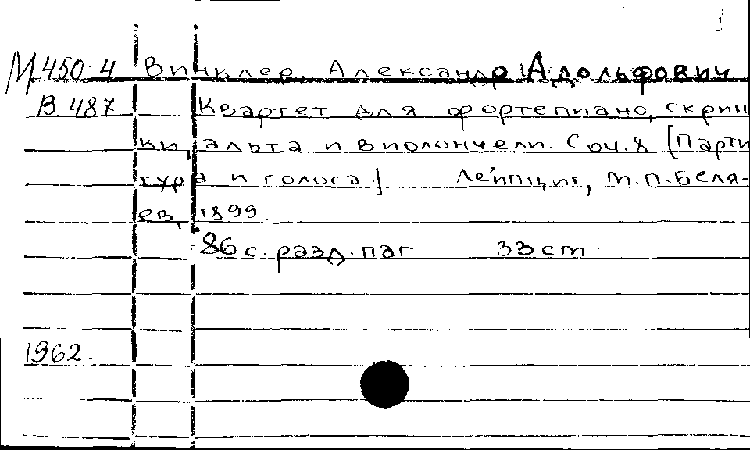 М 450.4 Винклер, Александр Адольфович
В 487 Квартет для фортепиано, скрип
ки, альта и виолончели. Соч. 8 [Парти
тура и голоса] Лейпциг, М.П. Беля-
ев, 1899.
86 с. разд. паг 33 cm.
1962.